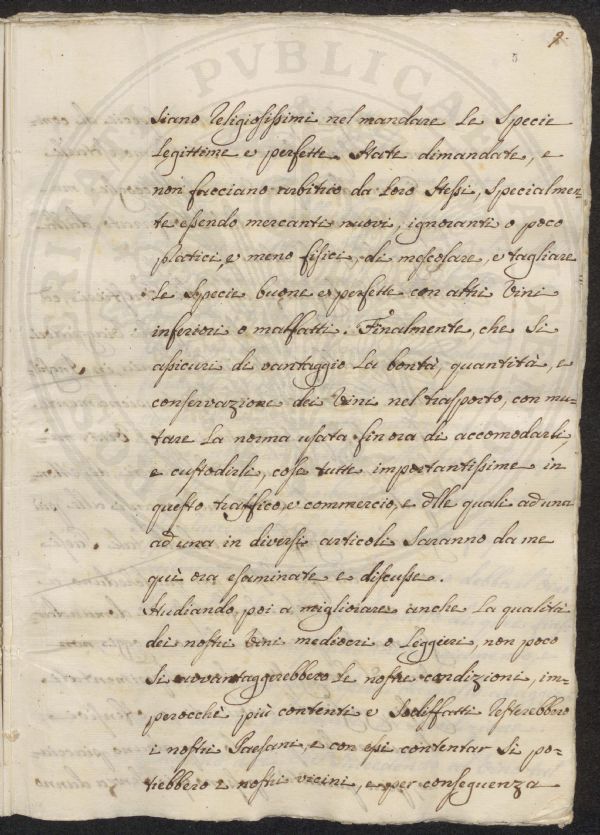 9.
5
siano religiosissimi nel mandare le specie
legittime e perfette state dimandate, e
non facciano arbitrio da loro stessi, specialmen=
te essendo mercanti nuovi, ignoranti o poco
pratici, e meno fisici, di mescolare, e tagliare
le specie buone e perfette con altri vini
inferiori o malfatti. Finalmente, che si
assicuri di vantaggio la bontà, quantità, e
conservazione dei vini nel trasporto, con mu=
tare la norma usata finora di accomodarli,
e custodirli, cose tutte importantissime in
questo traffico, e commercio, e dlle quali ad una
ad una in diversi articoli saranno da me
quì ora esaminate e discusse.
Studiando poi a migliorare anche la qualità
dei nostri vini mediocri o leggieri, non poco
si avvantaggerebbero le nostre condizioni, im=
perocchè più contenti e sodisfatti resterebbero
i nostri Paesani, e con essi contentar si po=
trebbero i nostri vicini, e per conseguenza
PVBLICA